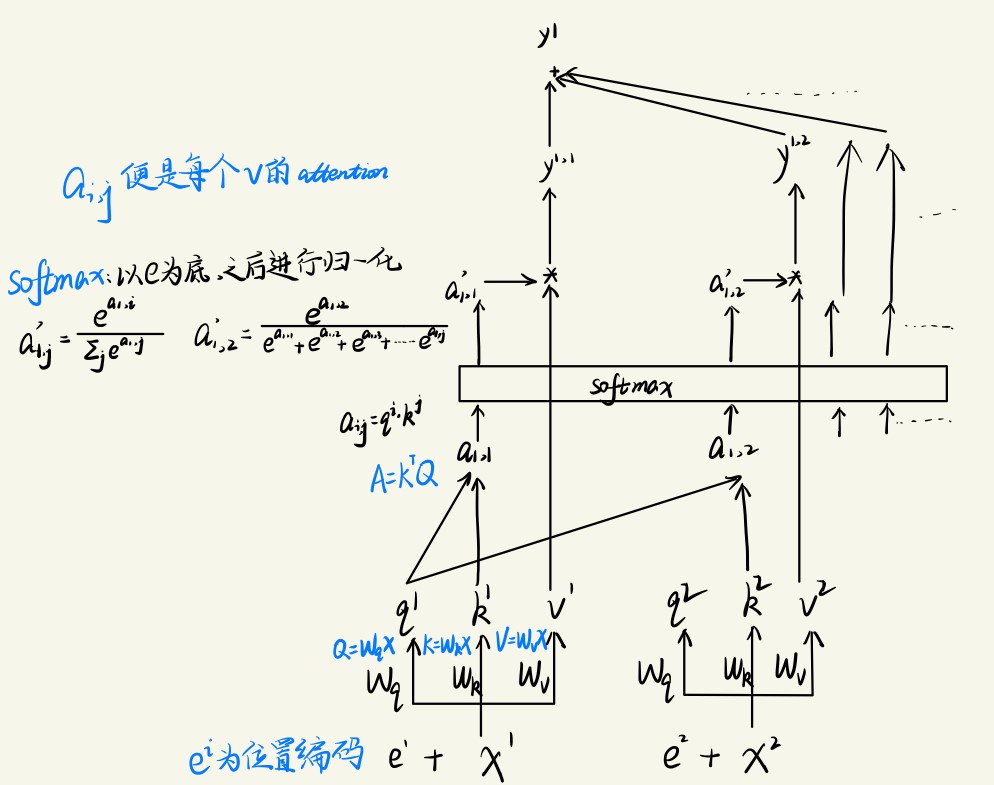 y¹
y¹,¹ y¹,²
aᵢ,ⱼ 便是每个v的attention
softmax:以e为底,之后进行归一化
a'₁,₁ a'₁,₂
a'₁,ⱼ = e^(a₁,ᵢ) / Σⱼ e^(a₁,ⱼ) a'₁,₂ = e^(a₁,₂) / e^(a₁,₁) + e^(a₁,₂) + e^(a₁,₃) + ---- e^(a₁,ⱼ)
softmax
aᵢⱼ = qⁱ·kʲ
a₁,₁ a₁,₂
A=KᵀQ
q¹ k¹ v¹ q² k² v²
Q=WqX K=WkX V=WvX
Wq Wk Wv Wq Wk Wv
eⁱ为位置编码 e¹ + X¹ e² + X²